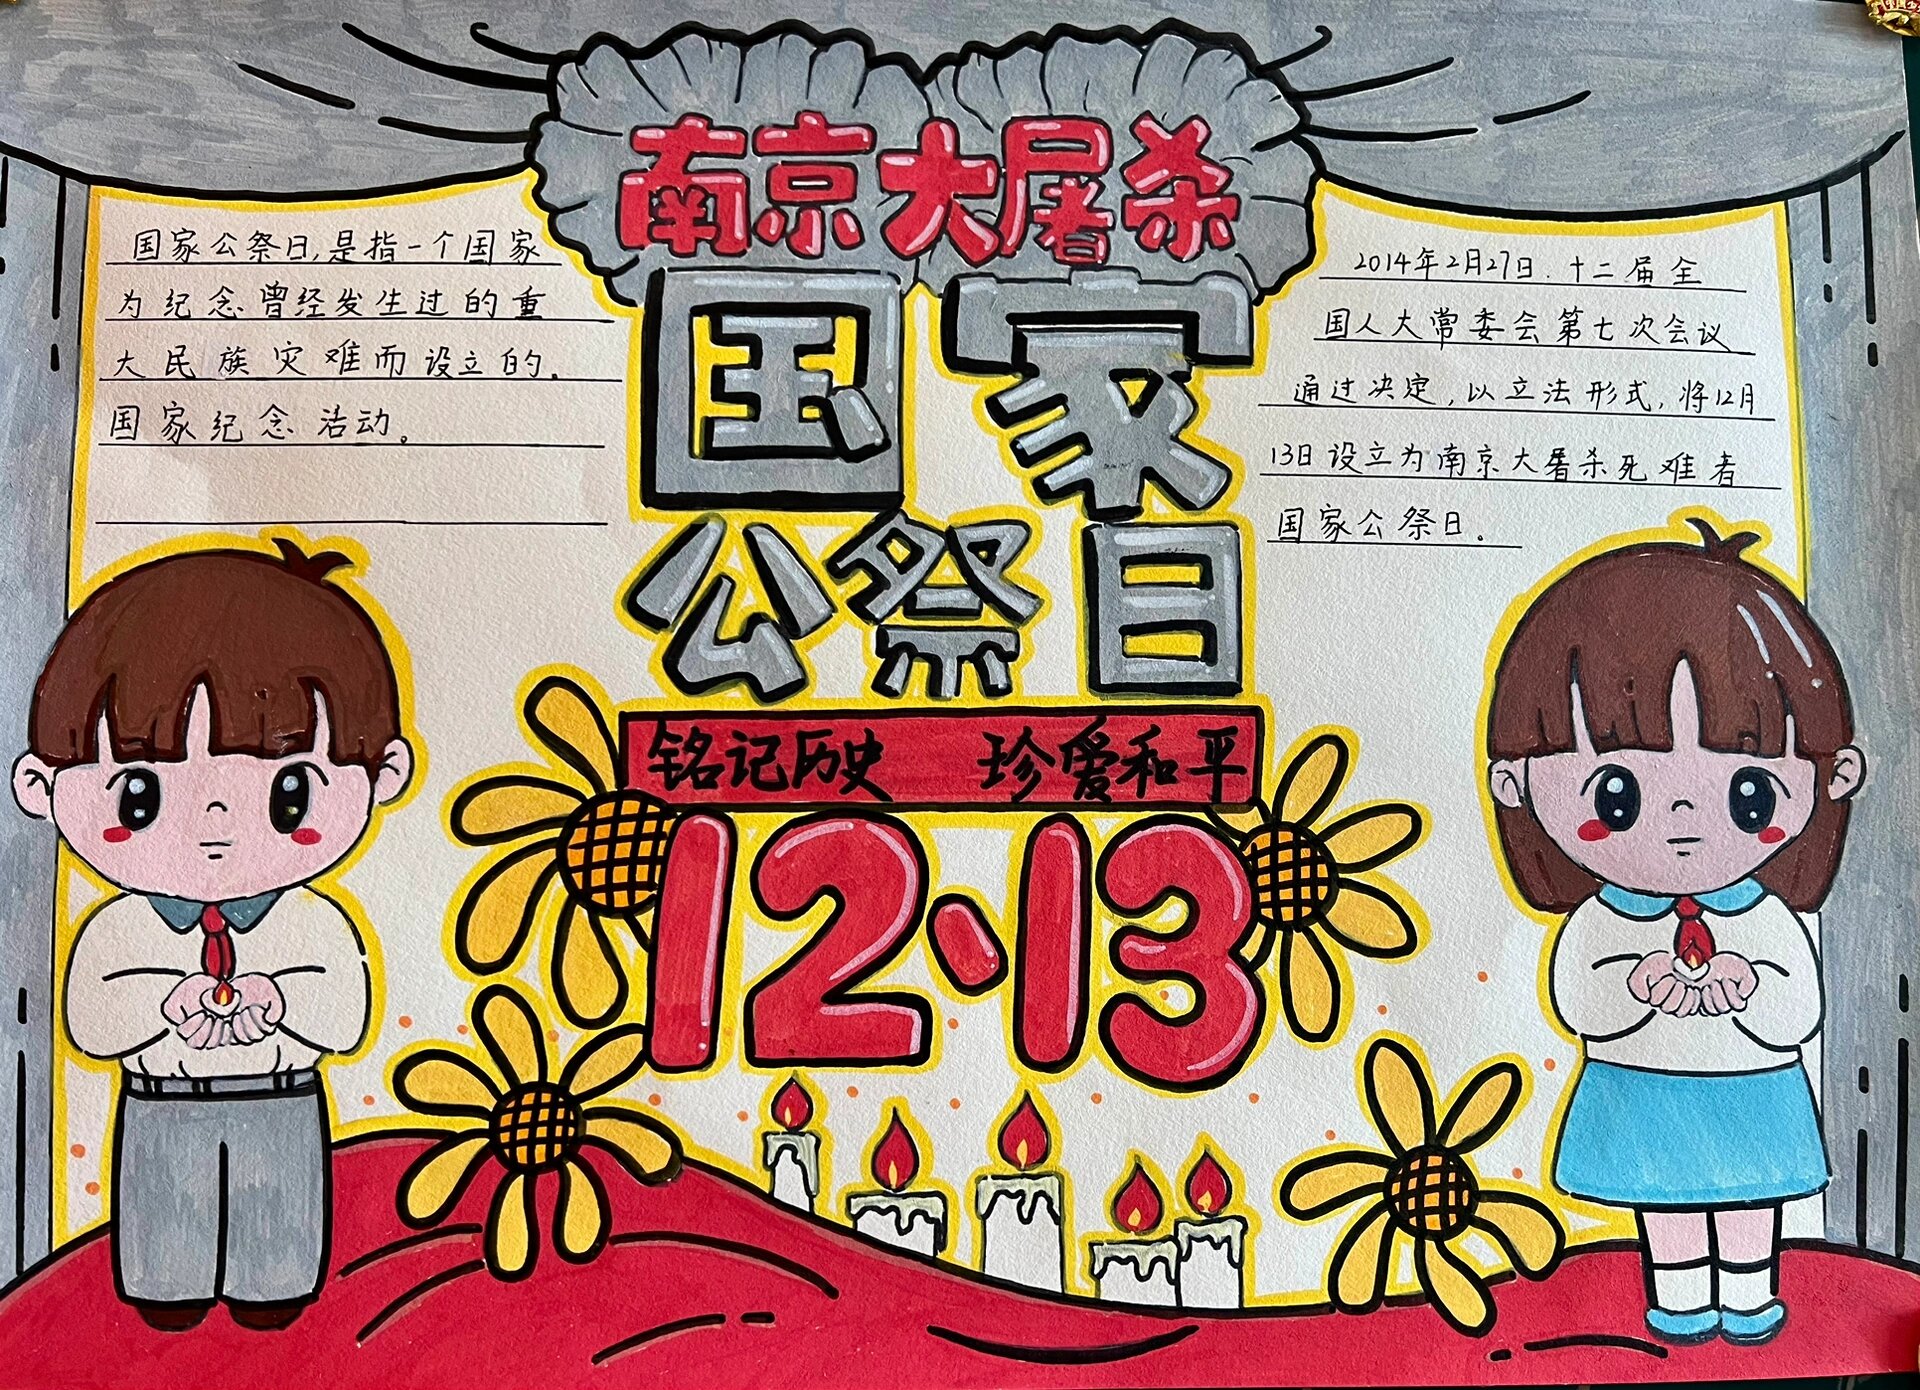 南京大屠杀
国家
公祭日
铭记历史 珍爱和平
12·13
国家公祭日,是指一个国家
为纪念曾经发生过的重
大民族灾难而设立的。
国家纪念活动。
2014年2月27日.十二届全
国人大常委会第七次会议
通过决定,以立法形式,将12月
13日设立为南京大屠杀死难者
国家公祭日。